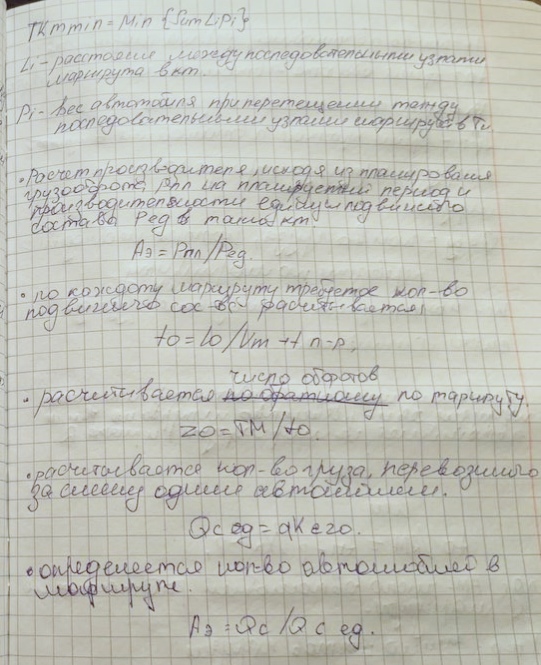 TKmmin = Min {SumLiPi}
Li - расстояние между последовательными узлами
маршрута в км.
Pi - вес автомобиля при перемещении между
последовательными узлами маршрута в Тн.
• Расчет производителя, исходя из планирования
грузооборота Рпл на планируемый период и
производительности единицы подвижного
состава Рeд в тонно км.
Аэ = Рпл/Рeд.
• по каждому маршруту требуемое кол-во
подвижного сос-ва расчитывается:
to = lo/Vm + t п-р.
число оборотов
• расчитывается по обратному по маршруту.
zo = TM/to.
• расчитывается кол-во груза, перевозимого
за смену одним автомобилем.
Qс ед = qKezo.
• определяется кол-во автомобилей в
маршруте.
Аэ = Qc/Qc ед.